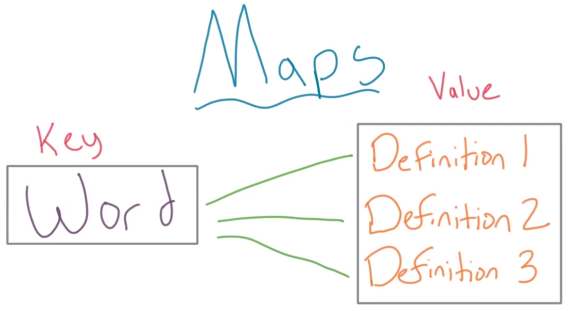 Maps
Key
Word
Value
Definition 1
Definition 2
Definition 3